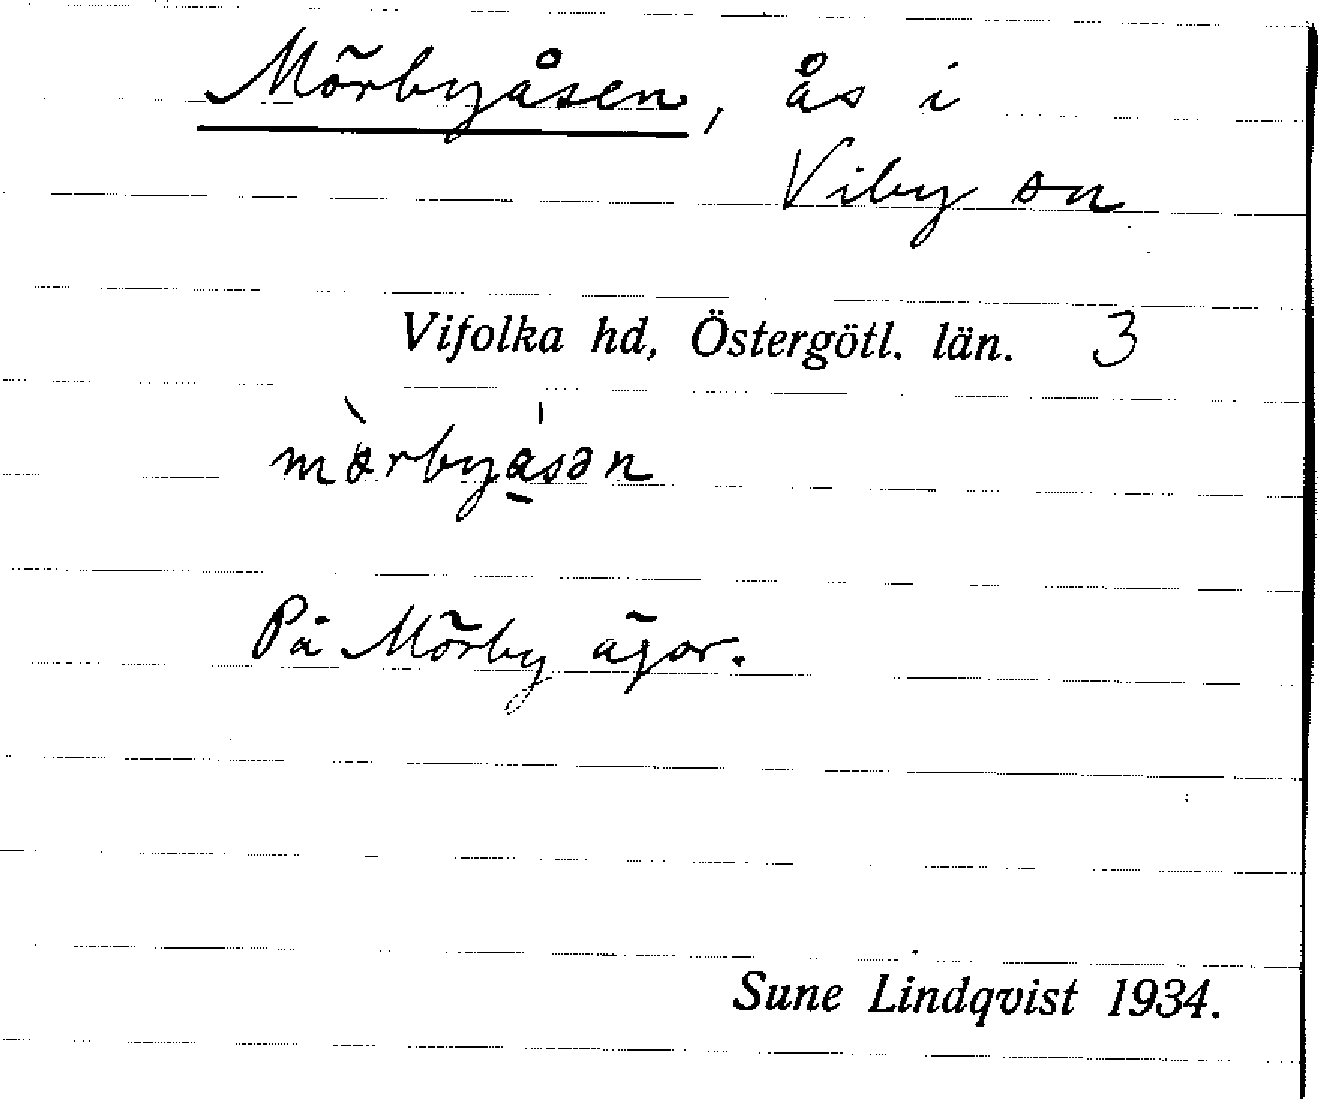 Mörbyåsen, ås i
Viby sn
Vifolka hd, Östergötl. län. 3
På Mörby ägor.
Sune Lindqvist 1934.